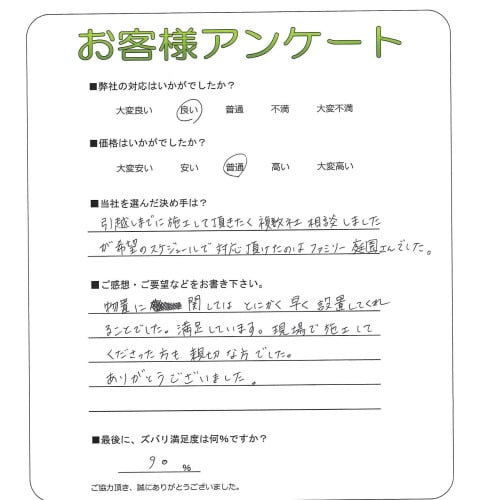 お客様アンケート
■弊社の対応はいかがでしたか？
大変良い 良い 普通 不満 大変不満
■価格はいかがでしたか？
大変安い 安い 普通 高い 大変高い
■当社を選んだ決め手は？
引越しまでに施工して頂きたく複数社相談しました
が希望のスケジュールで対応頂けたのはファミリー庭園さんでした。
■ご感想・ご要望などをお書き下さい。
物置に関しては とにかく早く設置してくれ
ることでした。満足しています。現場で施工して
くださった方も親切な方でした。
ありがとうございました。
■最後に、ズバリ満足度は何％ですか？
90 ％
ご協力頂き、誠にありがとうございました。